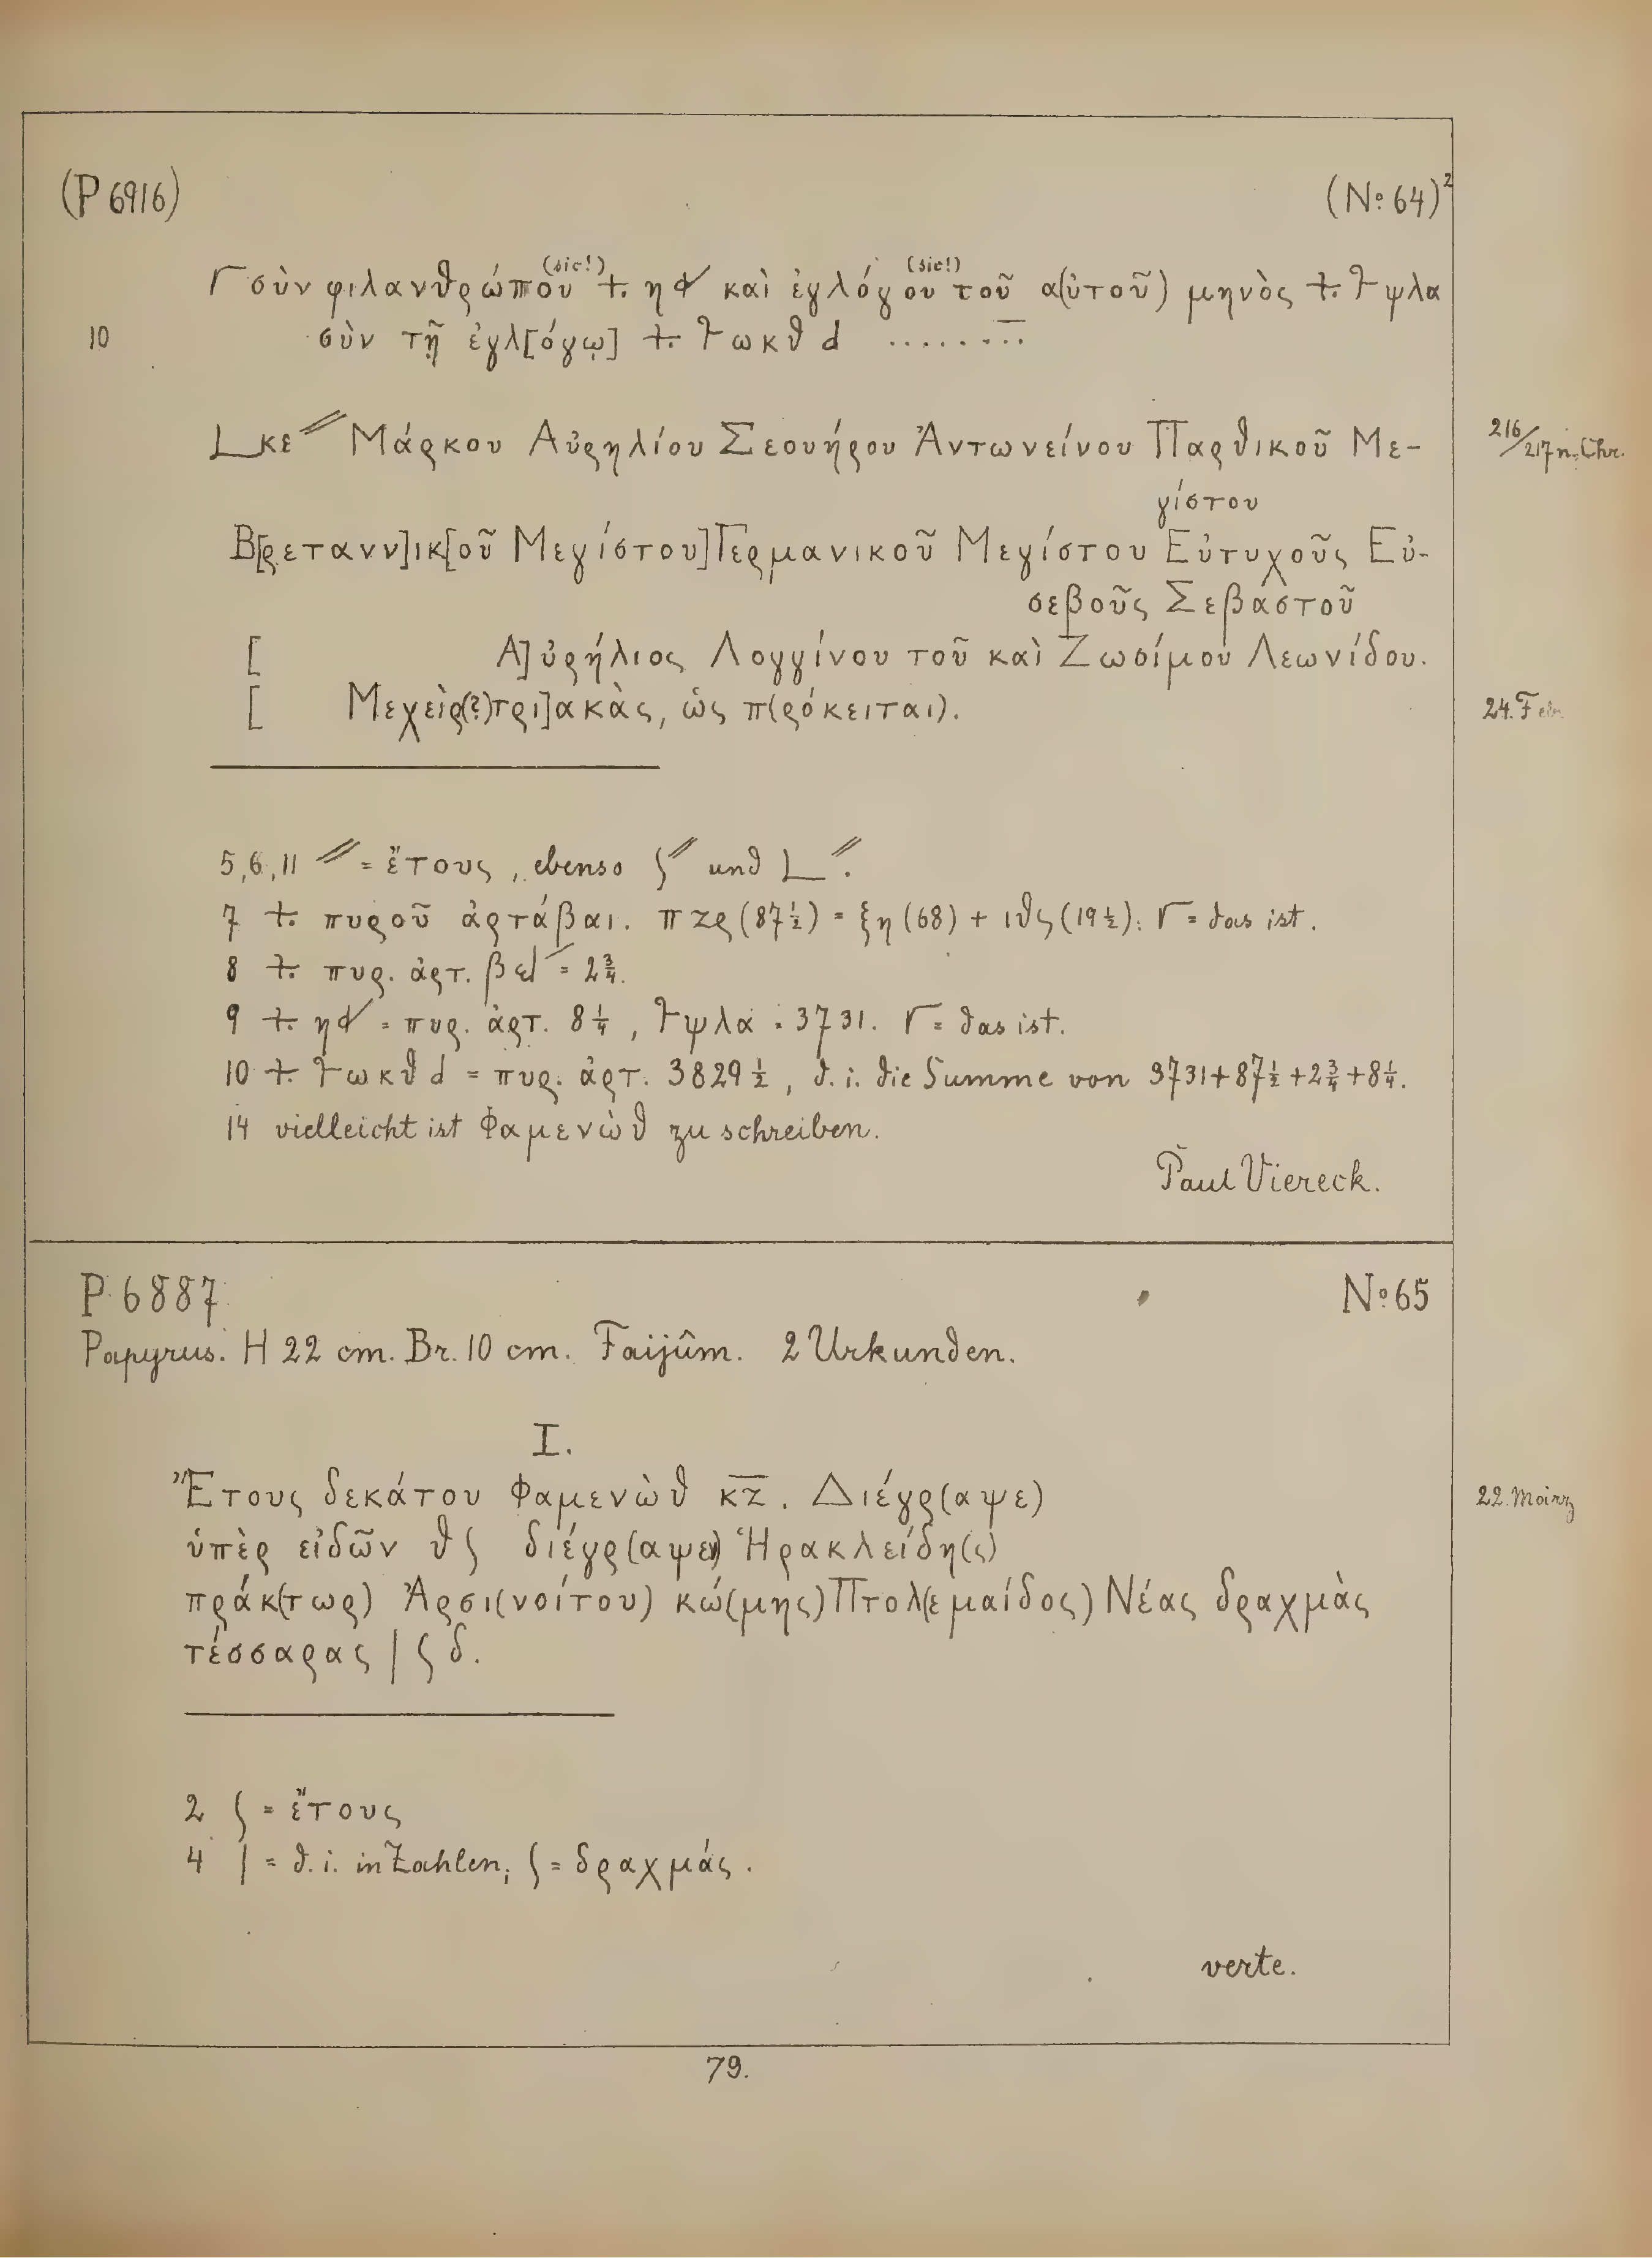 (P 6916) (No 64)²
(sic!) (sic!)
Γ σὺν φιλανθρώπου ⳨. η 𐅵 καὶ ἐγλόγου τοῦ α(ὐτοῦ) μηνὸς ⳨. Ͳψλα
10 σὺν τῇ ἐγλ[όγῳ] ⳨. Ͳωκθ d ........
Lκε⸗ Μάρκου Αὐρηλίου Σεουήρου Ἀντωνείνου Παρθικοῦ Με- 216/217 n. Chr.
γίστου
Β[ρεταννι]κ[οῦ Μεγίστου] Γερμανικοῦ Μεγίστου Εὐτυχοῦς Εὐ-
σεβοῦς Σεβαστοῦ
[ Α]ὐρήλιος Λογγίνου τοῦ καὶ Ζωσίμου Λεωνίδου.
[ Μεχεὶρ(?) τρι]ακὰς, ὡς π(ρόκειται). 24. Febr.
5, 6, 11 ⸗ = ἔτους, ebenso ʃ⸗ und L⸗.
7 ⳨. πυροῦ ἀρτάβαι. πζς (87½) = ξη (68) + ιθς (19½). Γ = das ist.
8 ⳨. πυρ. ἀρτ. βεd = 2¾.
9 ⳨. ηd = πυρ. ἀρτ. 8¼, Ͳψλα = 3731. Γ = das ist.
10 ⳨. Ͳωκθ d = πυρ. ἀρτ. 3829½, d. i. die Summe von 3731+87½+2¾+8¼.
14 vielleicht ist Φαμενὼθ zu schreiben.
Paul Viereck.
P. 6887. No 65
Papyrus. H 22 cm. Br. 10 cm. Faijûm. 2 Urkunden.
I.
Ἔτους δεκάτου Φαμενὼθ κζ. Διέγρ(αψε) 22. März
ὑπὲρ εἰδῶν θʃ διέγρ(αψε) Ἡρακλείδη(ς)
πράκ(τωρ) Ἀρσι(νοίτου) κώ(μης) Πτολ(εμαίδος) Νέας δραχμὰς
τέσσαρας | ʃ δ.
2 ʃ = ἔτους
4 | = d. i. in Zahlen; ʃ = δραχμάς.
verte.
79.